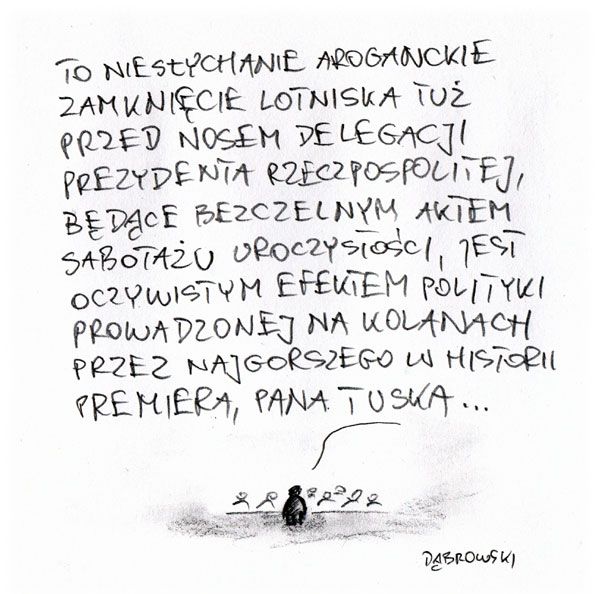 TO NIESŁYCHANIE AROGANCKIE
ZAMKNIĘCIE LOTNISKA TUŻ
PRZED NOSEM DELEGACJI
PREZYDENTA RZECZPOSPOLITEJ,
BĘDĄCE BEZCZELNYM AKTEM
SABOTAŻU UROCZYSTOŚCI, JEST
OCZYWISTYM EFEKTEM POLITYKI
PROWADZONEJ NA KOLANACH
PRZEZ NAJGORSZEGO W HISTORII
PREMIERA, PANA TUSKA...
DĄBROWSKI